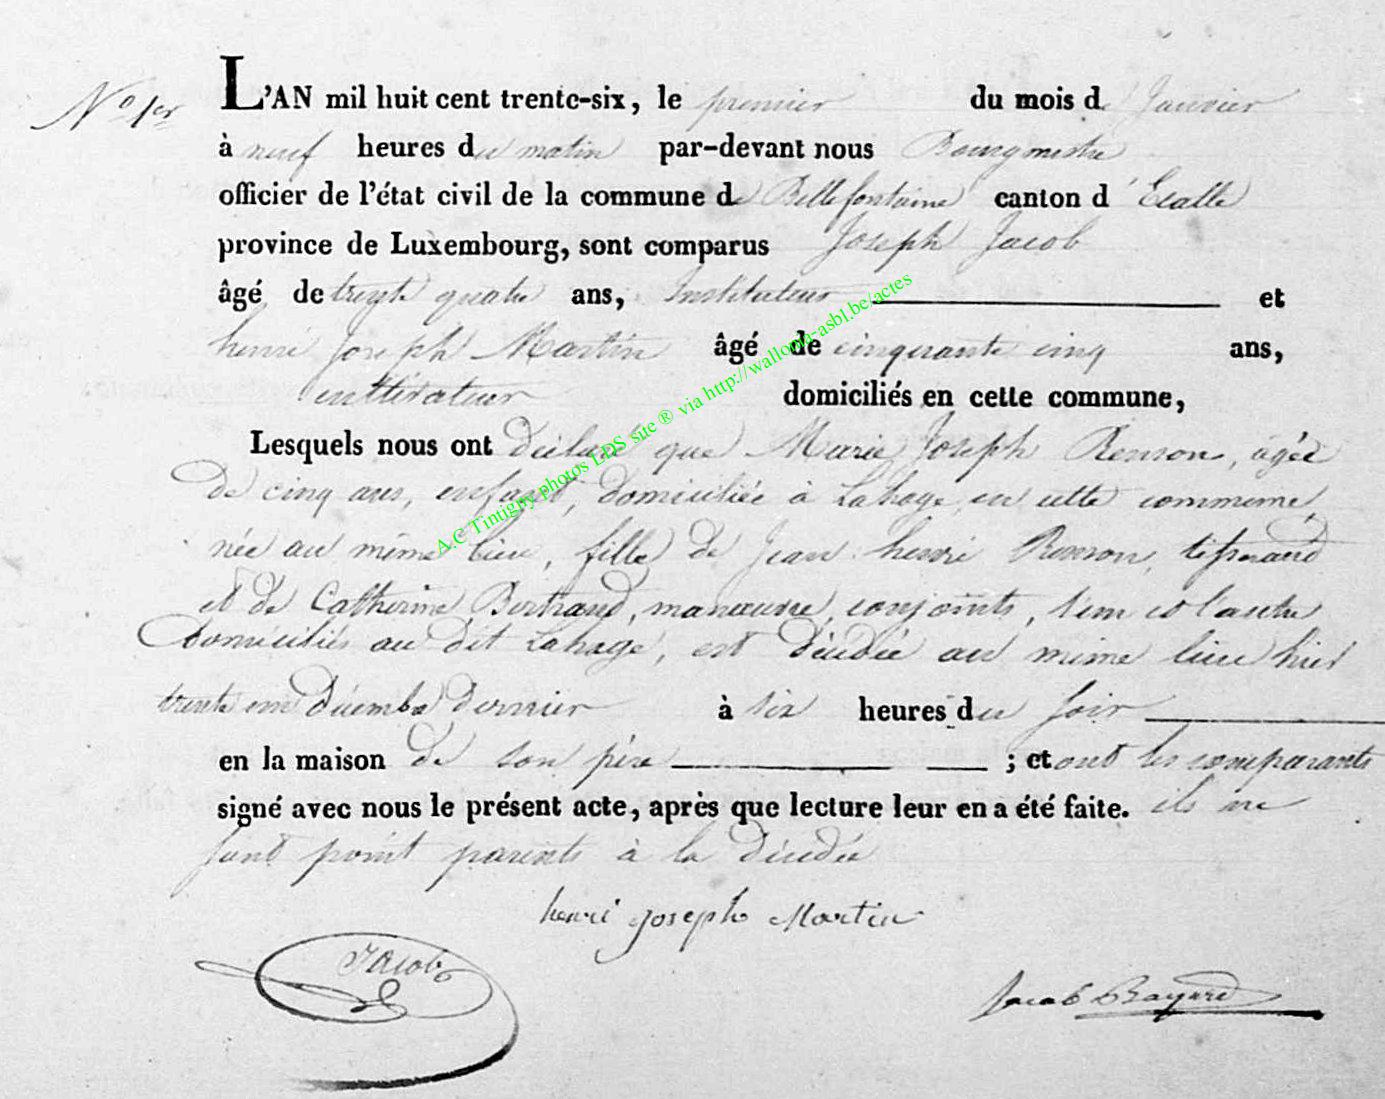 N° 1er
L'AN mil huit cent trente-six, le premier du mois de Janvier
à neuf heures du matin par-devant nous Bourgmestre
officier de l'état civil de la commune de Bellefontaine canton d'Etalle
province de Luxembourg, sont comparus Joseph Jacob
âgé de trente quatre ans, Instituteur et
henri Joseph Martin âgé de cinquante cinq ans,
cultivateur domiciliés en cette commune,
Lesquels nous ont déclaré que Marie Joseph Renson, agée
de cinq ans, enfant, domiciliée à Lahage en cette commune,
née au même lieu, fille de Jean henri Renson, tisserand
et de Catherine Bertrand, manœuvre, conjoints, l'un et l'autre
domiciliés au dit Lahage, est décédée au même lieu hier
trente un décembre dernier à six heures du soir
en la maison de son père ; et ont les comparants
signé avec nous le présent acte, après que lecture leur en a été faite. ils ne
sont point parents à la décédée
henri joseph Martin
Jacob
Jacob Bayard
A.C Tintigny photos LDS site ® via http://wallonia-asbl.be/actes